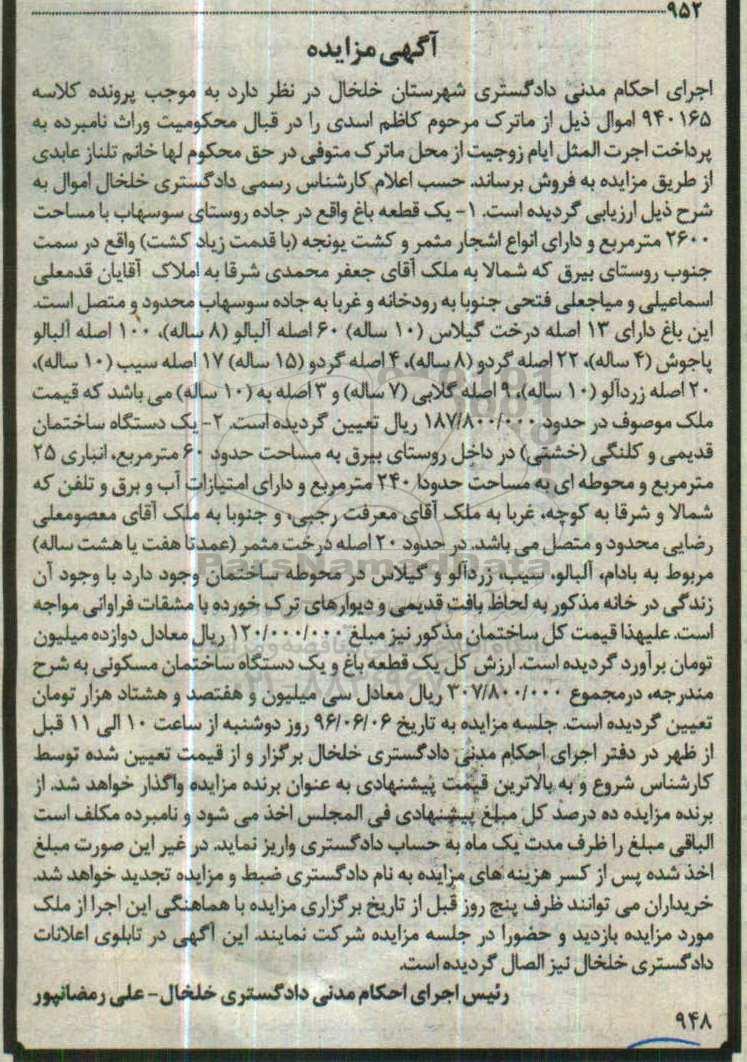 ۹۵۲
آگهی مزایده
اجرای احکام مدنی دادگستری شهرستان خلخال در نظر دارد به موجب پرونده کلاسه
۹۴۰۱۶۵ اموال ذیل از ماترک مرحوم کاظم اسدی را در قبال محکومیت وراث نامبرده به
پرداخت اجرت المثل ایام زوجیت از محل ماترک متوفی در حق محکوم لها خانم تلناز عابدی
از طریق مزایده به فروش برساند. حسب اعلام کارشناس رسمی دادگستری خلخال اموال به
شرح ذیل ارزیابی گردیده است. ۱- یک قطعه باغ واقع در جاده روستای سوسهاب با مساحت
۲۶۰۰ مترمربع و دارای انواع اشجار مثمر و کشت یونجه (با قدمت زیاد کشت) واقع در سمت
جنوب روستای بیرق که شمالا به ملک آقای جعفر محمدی شرقا به املاک آقایان قدمعلی
اسماعیلی و میاجعلی فتحی جنوبا به رودخانه و غربا به جاده سوسهاب محدود و متصل است.
این باغ دارای ۱۳ اصله درخت گیلاس (۱۰ ساله) ۶۰ اصله آلبالو (۸ ساله)، ۱۰۰ اصله آلبالو
پاجوش (۴ ساله)، ۲۲ اصله گردو (۸ ساله)، ۴ اصله گردو (۱۵ ساله) ۱۷ اصله سیب (۱۰ ساله)،
۲۰ اصله زردآلو (۱۰ ساله)، ۹ اصله گلابی (۷ ساله) و ۳ اصله به (۱۰ ساله) می باشد که قیمت
ملک موصوف در حدود ۱۸۷/۸۰۰/۰۰۰ ریال تعیین گردیده است. ۲- یک دستگاه ساختمان
قدیمی و کلنگی (خشتی) در داخل روستای بیرق به مساحت حدود ۶۰ مترمربع، انباری ۲۵
مترمربع و محوطه ای به مساحت حدودا ۲۴۰ مترمربع و دارای امتیازات آب و برق و تلفن که
شمالا و شرقا به کوچه، غربا به ملک آقای معرفت رجبی، و جنوبا به ملک آقای معصومعلی
رضایی محدود و متصل می باشد. در حدود ۲۰ اصله درخت مثمر (عمدتا هفت یا هشت ساله)
مربوط به بادام، آلبالو، سیب، زردآلو و گیلاس در محوطه ساختمان وجود دارد با وجود آن
زندگی در خانه مذکور به لحاظ بافت قدیمی و دیوارهای ترک خورده با مشقات فراوانی مواجه
است. علیهذا قیمت کل ساختمان مذکور نیز مبلغ ۱۲۰/۰۰۰/۰۰۰ ریال معادل دوازده میلیون
تومان برآورد گردیده است. ارزش کل یک قطعه باغ و یک دستگاه ساختمان مسکونی به شرح
مندرجه، درمجموع ۳۰۷/۸۰۰/۰۰۰ ریال معادل سی میلیون و هفتصد و هشتاد هزار تومان
تعیین گردیده است. جلسه مزایده به تاریخ ۹۶/۰۶/۰۶ روز دوشنبه از ساعت ۱۰ الی ۱۱ قبل
از ظهر در دفتر اجرای احکام مدنی دادگستری خلخال برگزار و از قیمت تعیین شده توسط
کارشناس شروع و به بالاترین قیمت پیشنهادی به عنوان برنده مزایده واگذار خواهد شد. از
برنده مزایده ده درصد کل مبلغ پیشنهادی فی المجلس اخذ می شود و نامبرده مکلف است
الباقی مبلغ را ظرف مدت یک ماه به حساب دادگستری واریز نماید. در غیر این صورت مبلغ
اخذ شده پس از کسر هزینه های مزایده به نام دادگستری ضبط و مزایده تجدید خواهد شد.
خریداران می توانند ظرف پنج روز قبل از تاریخ برگزاری مزایده با هماهنگی این اجرا از ملک
مورد مزایده بازدید و حضورا در جلسه مزایده شرکت نمایند. این آگهی در تابلوی اعلانات
دادگستری خلخال نیز الصال گردیده است.
رئیس اجرای احکام مدنی دادگستری خلخال- علی رمضانپور
۹۴۸
ParsNamadData